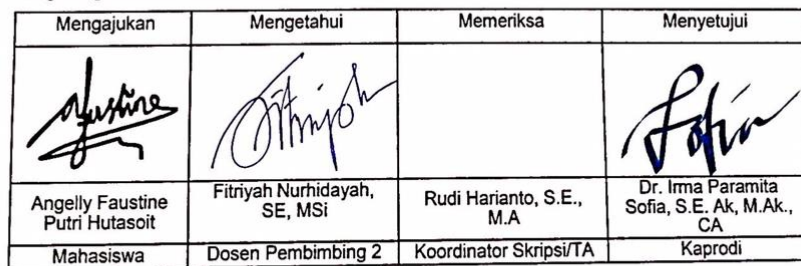 Mengajukan Mengetahui Memeriksa Menyetujui
Faustine Fitriyah Sofia
Angelly Faustine Putri Hutasoit
Fitriyah Nurhidayah, SE, MSi
Rudi Harianto, S.E., M.A
Dr. Irma Paramita Sofia, S.E. Ak, M.Ak., CA
Mahasiswa Dosen Pembimbing 2 Koordinator Skripsi/TA Kaprodi